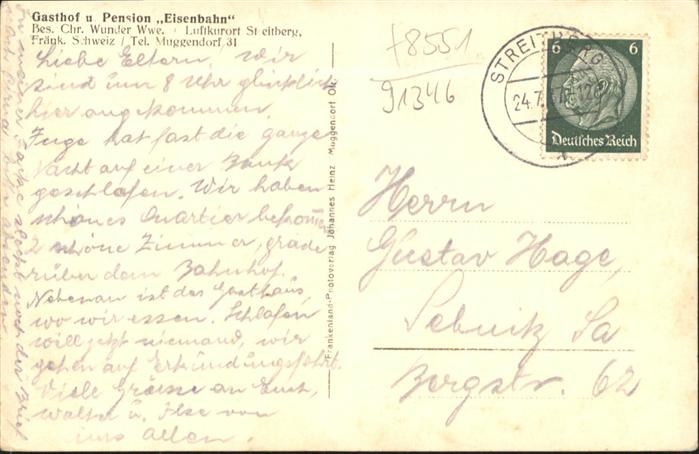 Gasthof u Pension „Eisenbahn"
Bes. Chr. Wunder Wwe. Luftkurort St eitberg,
Fränk. Schweiz / Tel. Muggendorf 31
Liebe Eltern, Wir
sind um 8 Uhr glücklich
hier angekommen.
Inge hat fast die ganze
Nacht auf einer Bank
geschlafen. Wir haben
schönes Quartier bekomm
2 schöne Zimmer, grade
rüber dem Bahnhof.
Nebenan ist das Gasthaus,
wo wir essen. Schlafen
will jetzt niemand, wir
gehen auf Erkundungsfahrt.
Viele Grüsse an Euch,
Walter u. Ilse von
uns allen.
der Brief
Frankenland-Photoverlag Johannes Heinz Muggendorf Ofr.
f8551
91346
STREITBERG
24.7.
6 6
Deutsches Reich
Herrn
Gustav Hage,
Sebnitz Sa
Bergstr. 62